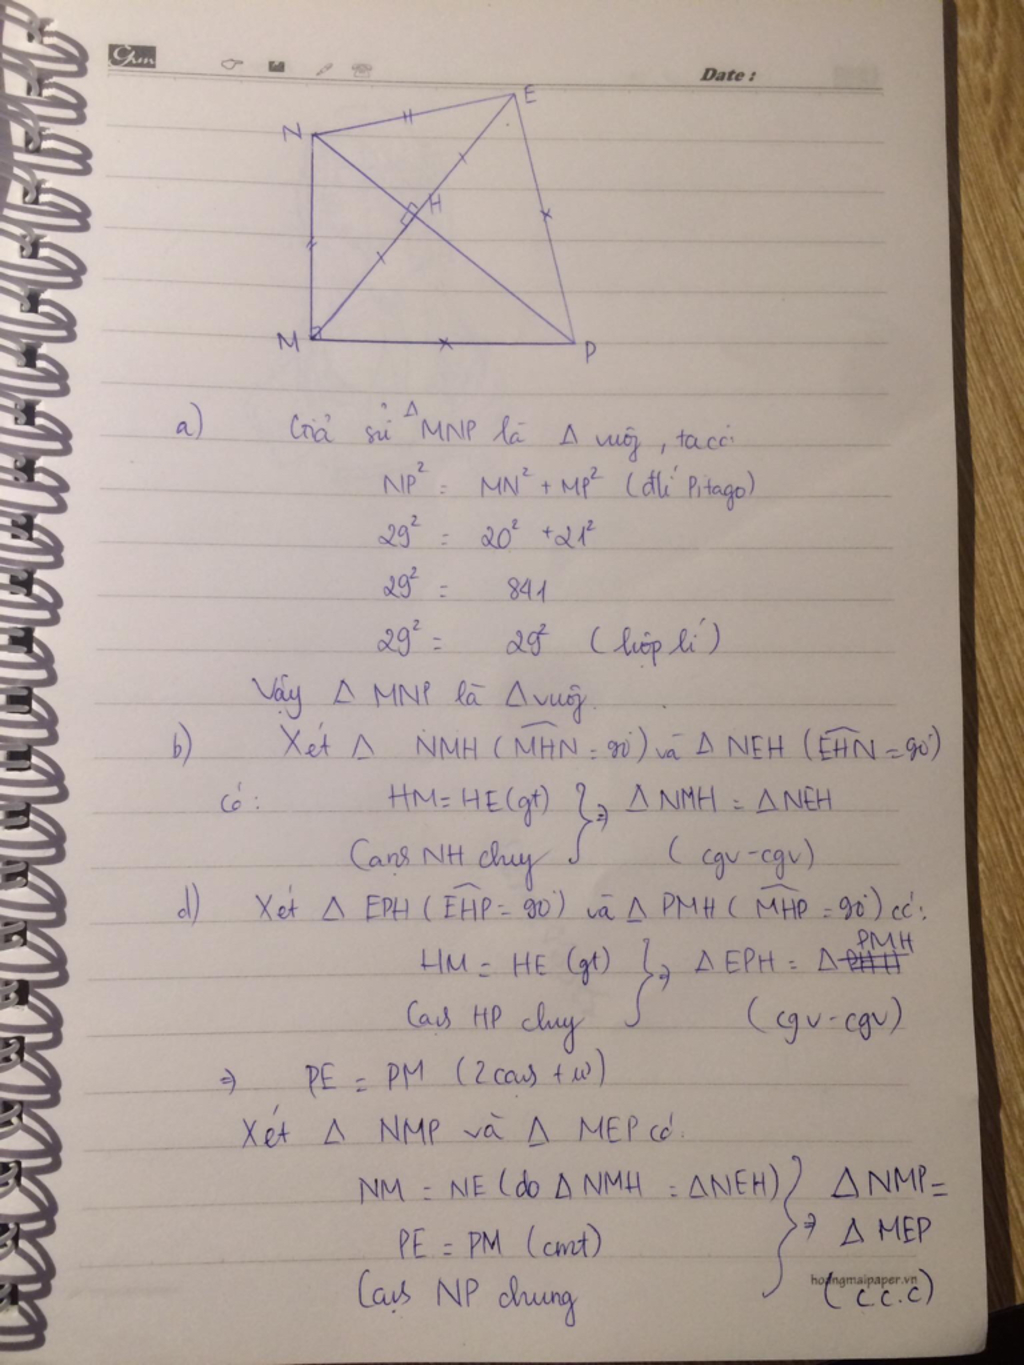 Date :
E
N
H
M
P
a) Giả sử △MNP là △ vuôg, ta có:
NP² = MN² + MP² (đlí Pitago)
29² = 20² + 21²
29² = 841
29² = 29² (hợp lí)
Vậy △ MNP là △ vuôg.
b) Xét △ NMH (MHN = 90°) và △ NEH (EHN = 90°)
có: HM = HE (gt) } ⇒ △ NMH = △NEH
Cạnh NH chug (cgv-cgv)
d) Xét △ EPH (EHP = 90°) và △ PMH (MHP = 90°) có:
HM = HE (gt) } ⇒ △ EPH = △ PMH
HP (cgv-cgv)
⇒ PE = PM (2 cạnh t/ư)
Xét △ NMP và △ MEP có:
NM = NE (do △ NMH = △NEH) } ⇒ △ NMP =
PE = PM (cmt) △ MEP
NP chung (c.c.c)
hoangmaipaper.vn